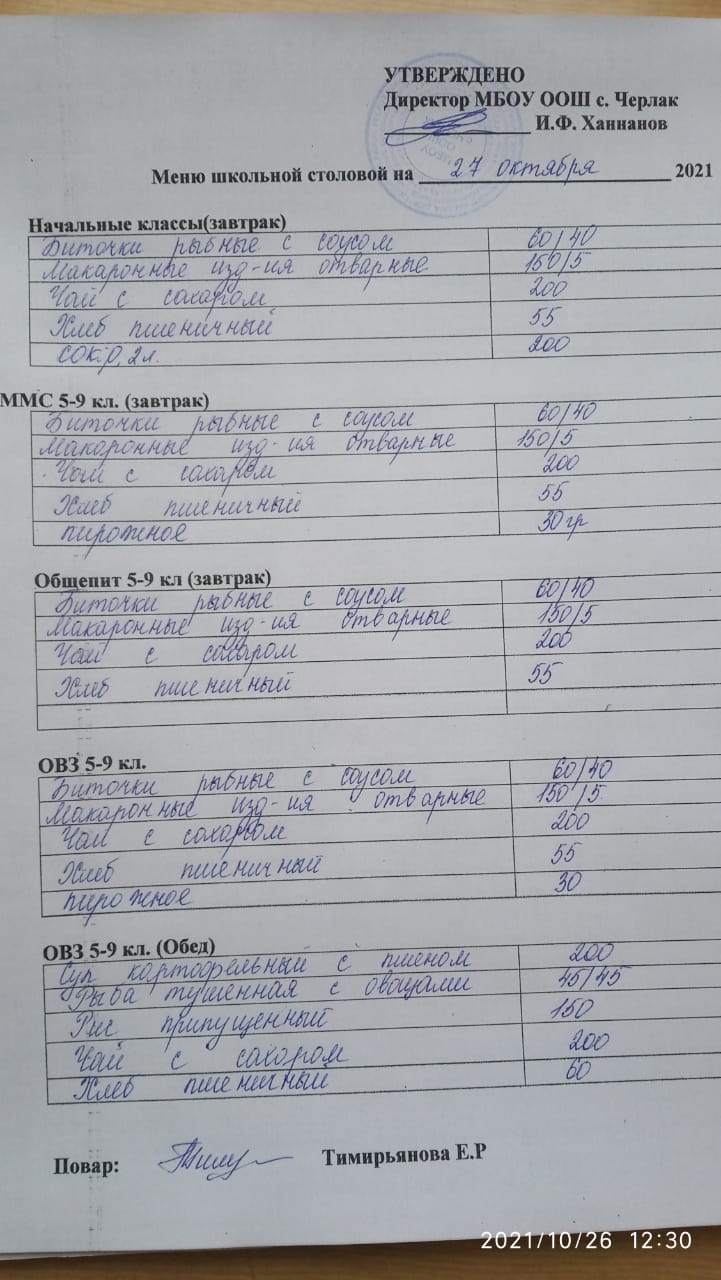 УТВЕРЖДЕНО
Директор МБОУ ООШ с. Черлак
И.Ф. Ханнанов
Меню школьной столовой на 27 октября 2021
Начальные классы(завтрак)
Биточки рыбные с соусом 60/40
Макаронные изд-ия отварные 150/5
Чай с сахаром 200
Хлеб пшеничный 55
сок 0,2л. 200
ММС 5-9 кл. (завтрак)
Биточки рыбные с соусом 60/40
Макаронные изд-ия отварные 150/5
Чай с сахаром 200
Хлеб пшеничный 55
пирожное 30гр
Общепит 5-9 кл (завтрак)
Биточки рыбные с соусом 60/40
Макаронные изд-ия отварные 150/5
Чай с сахаром 200
Хлеб пшеничный 55
ОВЗ 5-9 кл.
Биточки рыбные с соусом 60/40
Макаронные изд-ия отварные 150/5
Чай с сахаром 200
Хлеб пшеничный 55
пирожное 30
ОВЗ 5-9 кл. (Обед)
Суп картофельный с пшеном 200
Рыба тушенная с овощами 45/45
Рис припущенный 150
Чай с сахором 200
Хлеб пшеничный 60
Повар: Тимирьянова Е.Р
2021/10/26 12:30